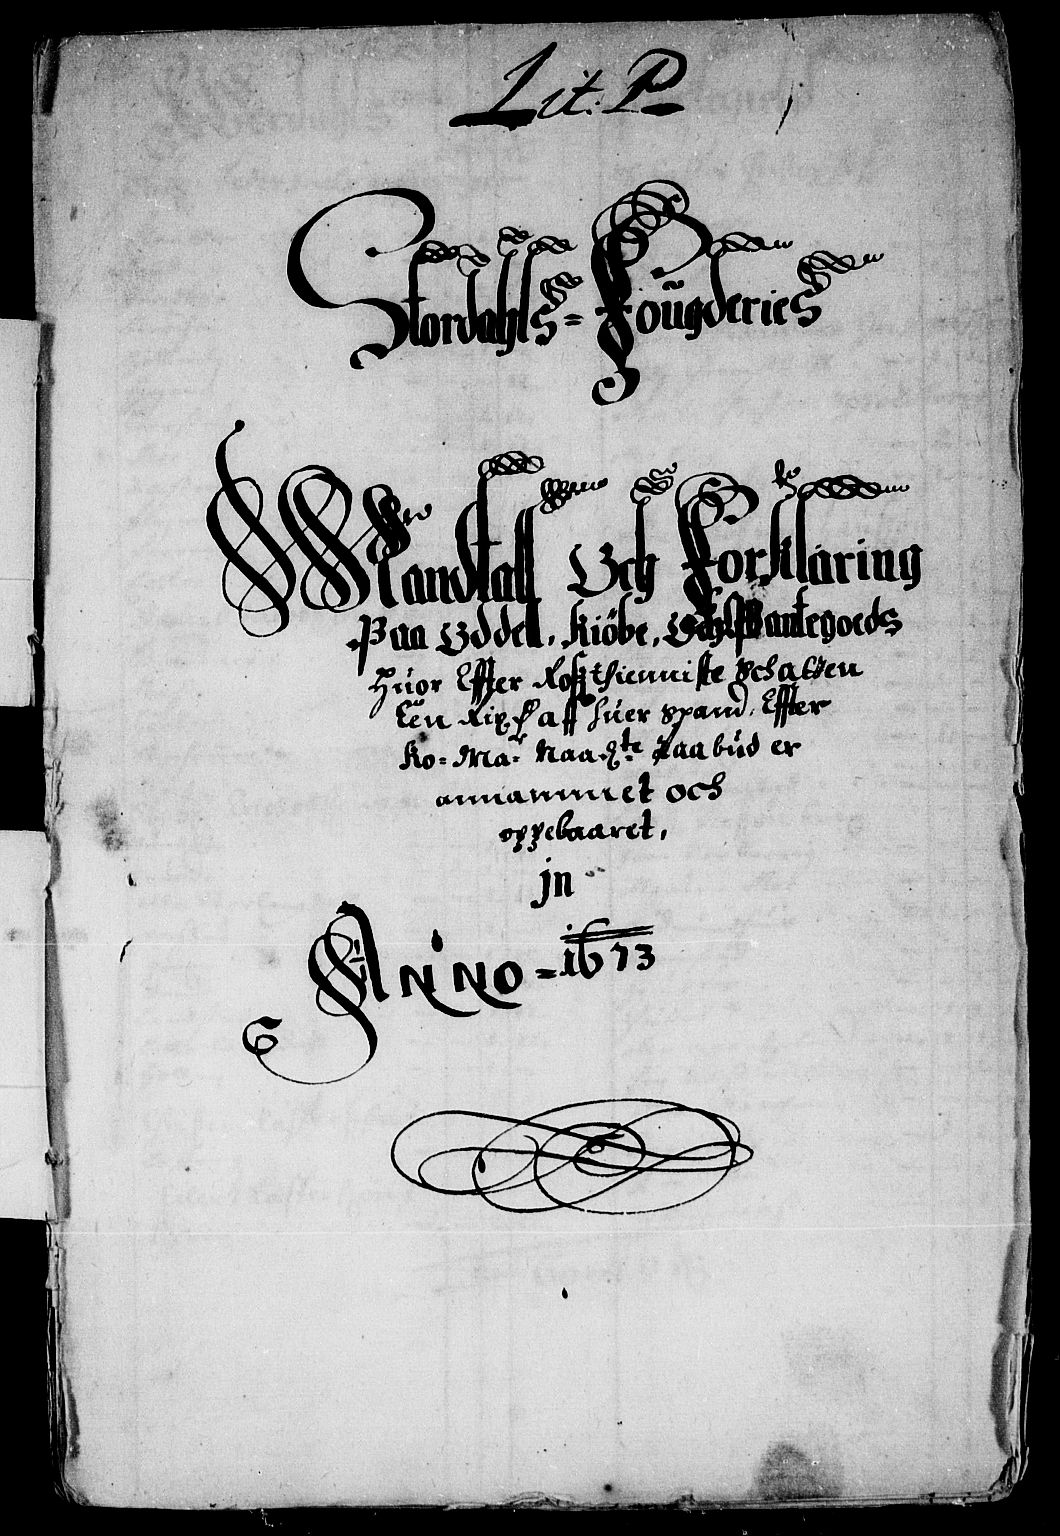 Lit: P
Stordahls = Fougderies
Mandtall Och Forklaring
Paa Oddel, Kiöbe, Och Pantegoeds
Huor Effter Rosthienniste Schatten
Een Rix aff huer Spand, Effter
Ko: Ma: Naadte Paabud er
annammet och
oppebaaret,
jn
ANNO = 1673